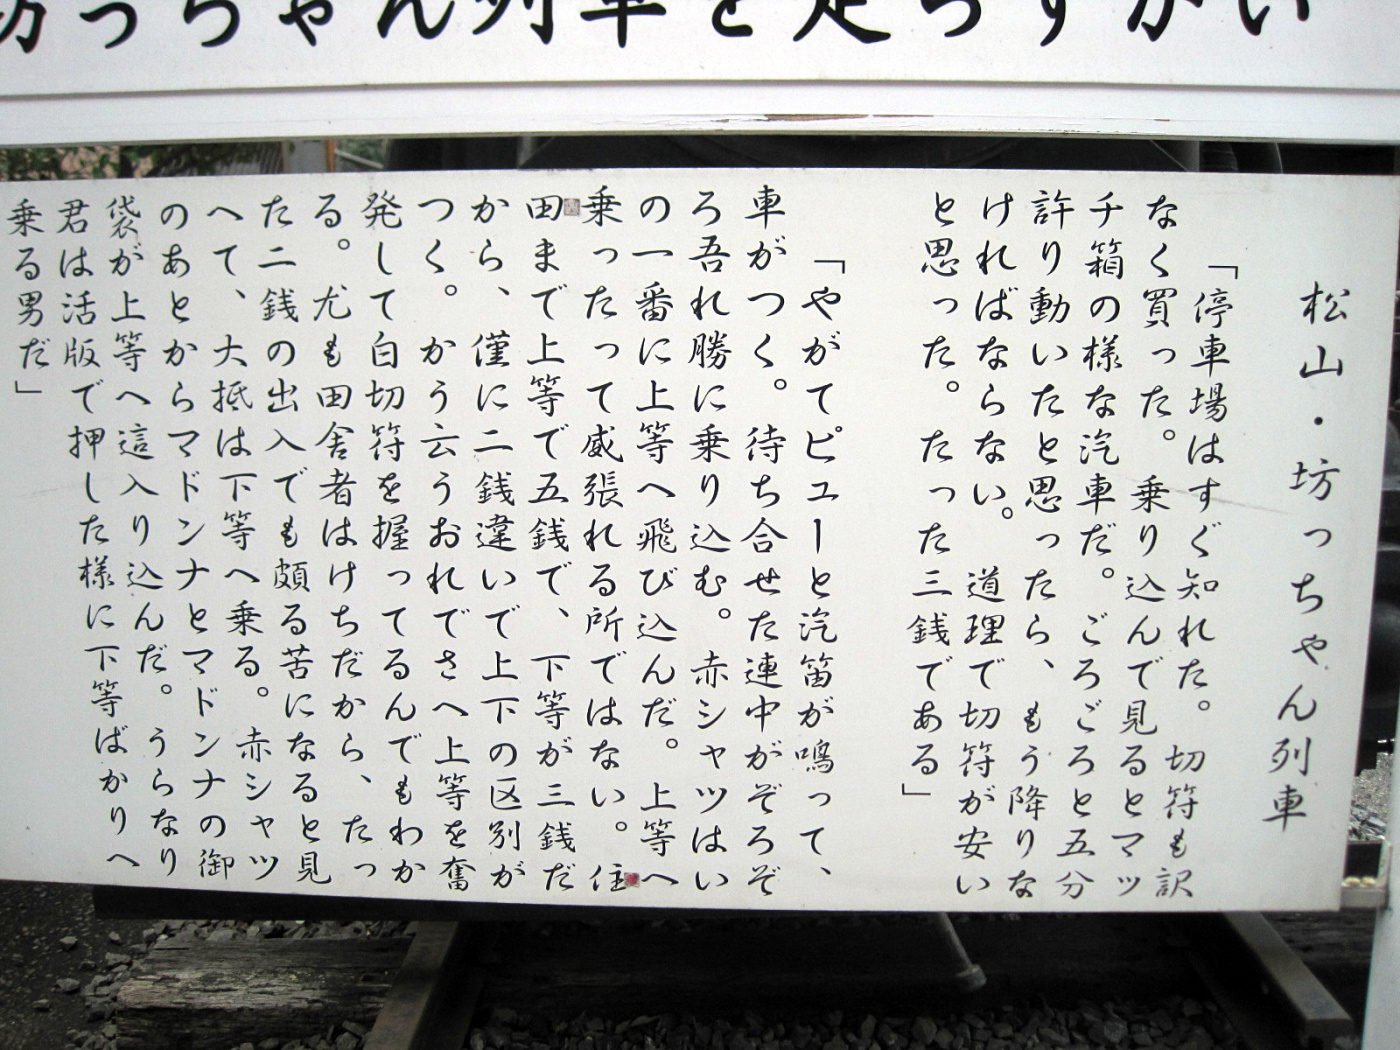 坊っちゃん列車を走らすかい
松山・坊っちゃん列車
「停車場はすぐ知れた。切符も訳
なく買った。乗り込んで見るとマッ
チ箱の様な汽車だ。ごろごろと五分
許り動いたと思ったら、もう降りな
ければならない。道理で切符が安い
と思った。たった三銭である」
「やがてピューと汽笛が鳴って、
車がつく。待ち合せた連中がぞろぞ
ろ吾れ勝に乗り込む。赤シャツはい
の一番に上等へ飛び込んだ。上等へ
乗ったって威張れる所ではない。住
田まで上等で五銭で、下等が三銭だ
から、僅に二銭違いで上下の区別が
つく。かう云うおれでさへ上等を奮
発して白切符を握ってるんでもわか
る。尤も田舎者はけちだから、たっ
た二銭の出入でも頗る苦になると見
へて、大抵は下等へ乗る。赤シャツ
のあとからマドンナとマドンナの御
袋が上等へ這入り込んだ。うらなり
君は活版で押した様に下等ばかりへ
乗る男だ」